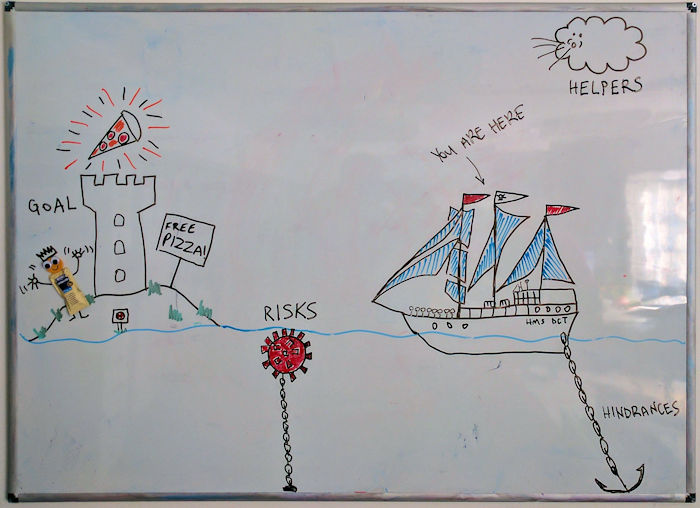 HELPERS
YOU ARE HERE
GOAL
FREE
PIZZA!
RISKS
HMS DCT
HINDRANCES